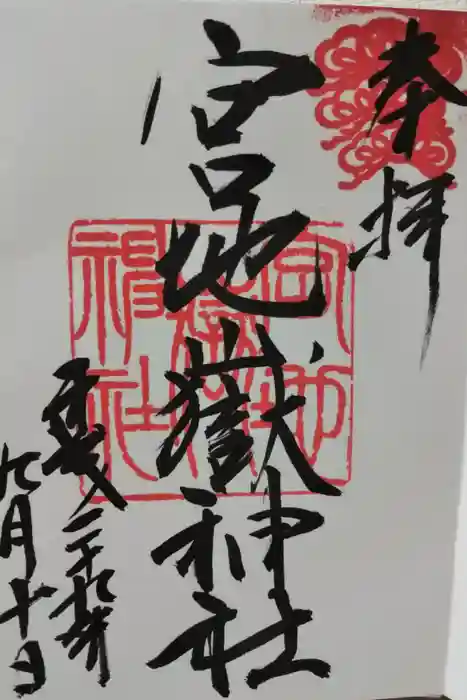 奉拝
宮地嶽神社
宮地嶽神社
平成二十九年
九月十日